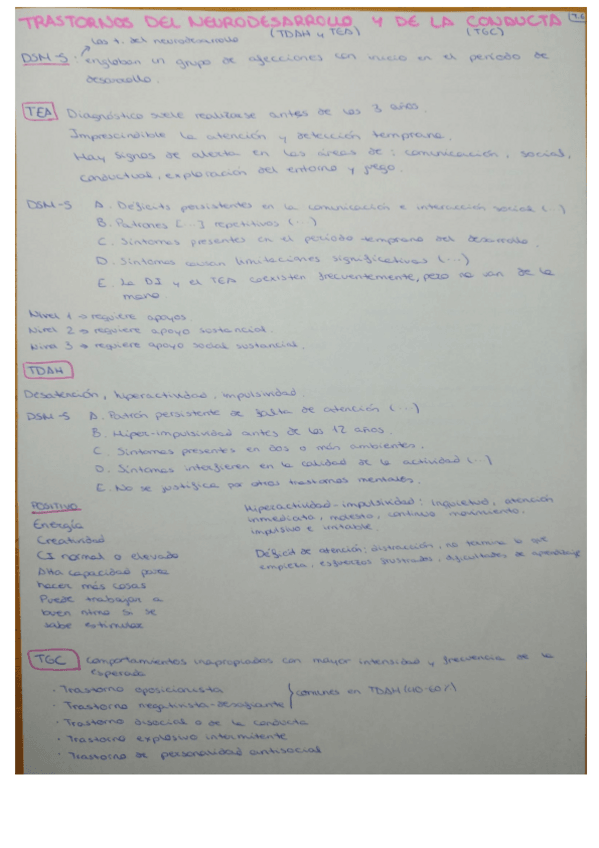 TRASTORNOS DEL NEURODESARROLLO Y DE LA CONDUCTA T.6
(TDAH y TEA) (TGC)
los t. del neurodesarrollo
DSM-5: engloban un grupo de afecciones con inicio en el período de
desarrollo.
TEA Diagnóstico suele realizarse antes de los 3 años.
Imprescindible la atención y detección temprana.
Hay signos de alerta en las áreas de: comunicación, social,
conductual, exploración del entorno y juego.
DSM-5 A. Déficits persistentes en la comunicación e interacción social (...)
B. Patrones [...] repetitivos (...)
C. Síntomas presentes en el período temprano del desarrollo.
D. Síntomas causan limitaciones significativas (...)
E. La DI y el TEA coexisten frecuentemente, pero no van de la
mano
Nivel 1 → requiere apoyos.
Nivel 2 → requiere apoyo sustancial.
Nivel 3 → requiere apoyo social sustancial.
TDAH
Desatención, hiperactividad, impulsividad.
DSM-5 A. Patrón persistente de falta de atención (...)
B. Hiper-impulsividad antes de los 12 años.
C. Síntomas presentes en dos o más ambientes.
D. Síntomas interfieren en la calidad de la actividad (...)
E. No se justifica por otros trastornos mentales.
POSITIVO
Energía
Creatividad
CI normal o elevado
Alta capacidad para
hacer más cosas
Puede trabajar a
buen ritmo si se
sabe estimular
Hiperactividad-impulsividad: inquietud, atención
inmediata, molesto, continuo movimiento.
impulsivo e irritable.
Déficit de atención: distracción, no termina lo que
empieza, esfuerzos frustrados, dificultades de aprendizaje
TGC comportamientos inapropiados con mayor intensidad y frecuencia de lo
esperado
· Trastorno oposicionista
· Trastorno negativista-desafiante } comunes en TDAH (40-60%)
· Trastorno disocial o de la conducta
· Trastorno explosivo intermitente
· Trastorno de personalidad antisocial